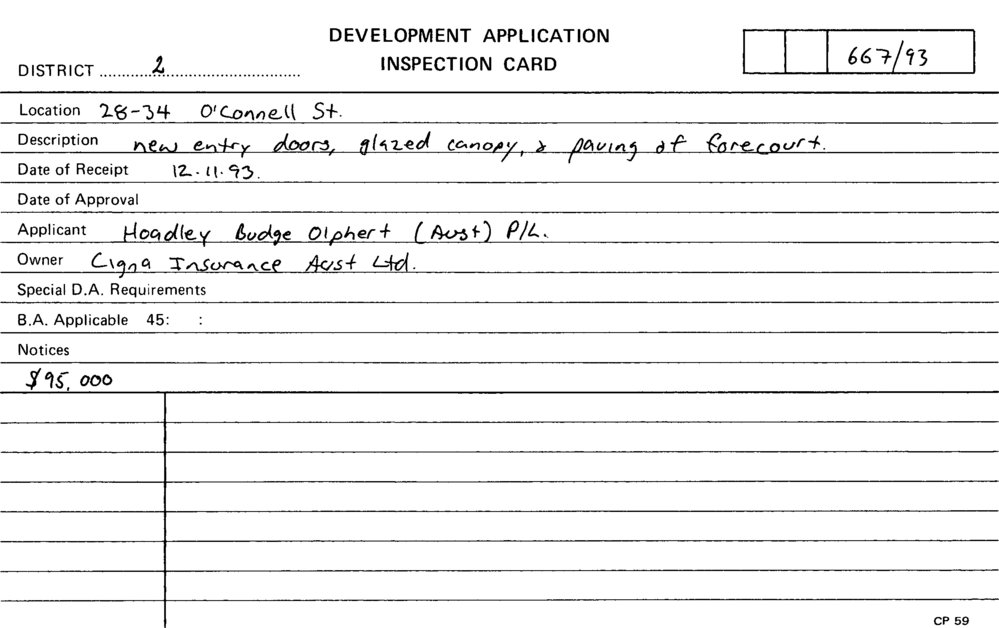 DEVELOPMENT APPLICATION
INSPECTION CARD
667/93
DISTRICT 2
Location 28-34 O'Connell St.
Description new entry doors, glazed canopy, & paving of forecourt.
Date of Receipt 12.11.93.
Date of Approval
Applicant Hoadley Budge Olphert (Aust) P/L.
Owner Cigna Insurance Aust Ltd.
Special D.A. Requirements
B.A. Applicable 45: :
Notices
$95,000
CP 59